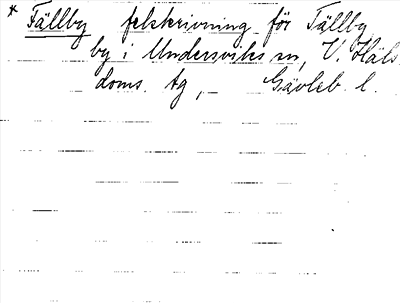 * Fällby felskrivning för Tällby
by i Undersviks sn, V. Häls.
doms. tg, Gävleb. l.